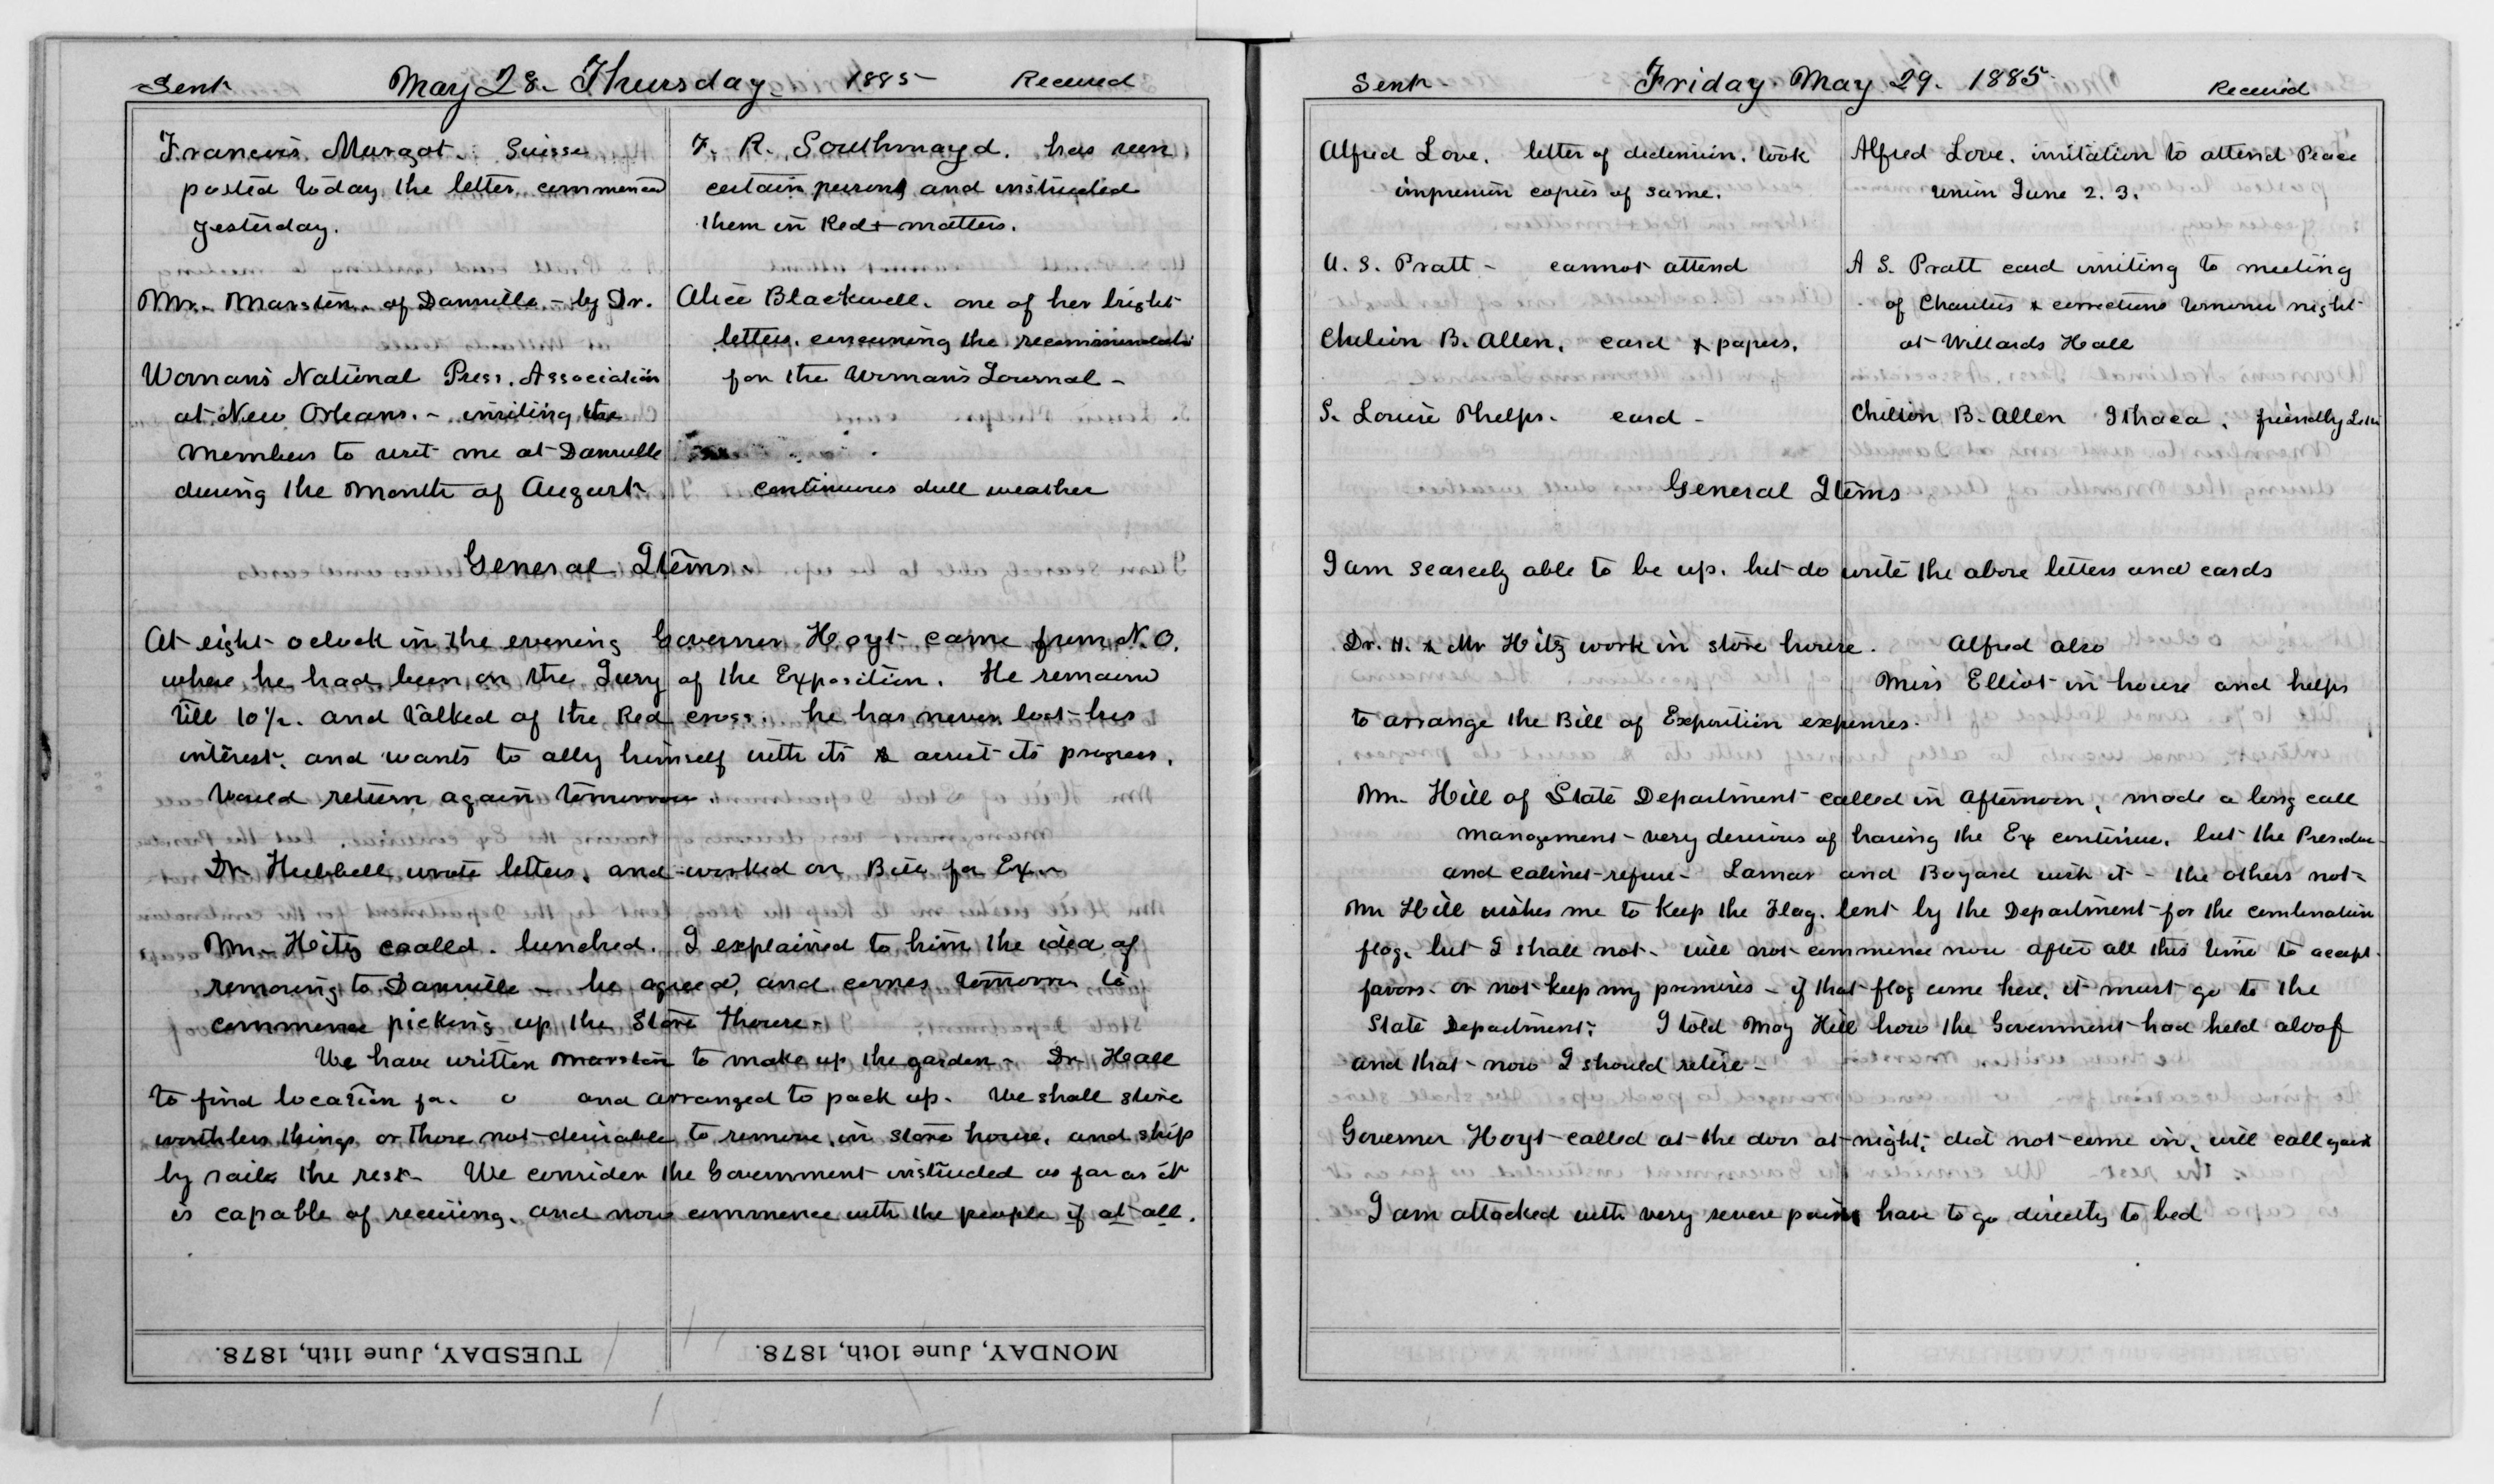 Sent May 28. Thursday. 1885 Received
Francois Margot. Suisse
posted today the letter commenced
yesterday.
Mr. Marston of Dansville - by Dr.
Womans National Press. Association
at New Orleans. - inviting the
members to visit me at Dansville
during the month of August.
F. R. Southmayd. has seen
certain persons and instructed
them in Red + matters.
Alice Blackwell. one of her bright
letters. concerning the
for the Womans Journal -
continuous dull weather
General Items
At eight oclock in the evening Governer Hoyt came from N.O.
where he had been on the Jury of the Exposition. He remained
till 10½. and talked of the Red cross. he has never lost his
interest. and wants to ally himself with its & assist its progress.
Would return again tomorrow.
Dr Hubbell wrote letters. and worked on Bill for Ex.
Mr. Hitz called. lunched. I explained to him the idea of
removing to Dansville - he agreed, and comes tomorrow to
commence picking up the Store House -
We have written Marston to make up the garden - Dr. Hall
to find location for o and arranged to pack up. We shall store
worthless things or those not desirable to remove. in store house, and ship
by rail the rest - We consider the Government instructed as far as it
is capable of receiving. and now commence with the people if at all.
MONDAY, June 10th, 1878.
TUESDAY, June 11th, 1878.
Sent Friday. May 29. 1885 Received
Alfred Love. letter of declension. took
impression copies of same.
A. S. Pratt - cannot attend
Chilion B. Allen. card & papers.
S. Louise Phelps. card -
Alfred Love. invitation to attend Peace
union June 2. 3.
A S. Pratt card inviting to meeting
of Charities & corrections tomorrow night
at Willards Hall
Chilion B. Allen Ithaca. friendly Letter
General Items
I am scarcely able to be up. but do write the above letters and cards
Dr. H. & Mr Hitz work in store house. Alfred also
Miss Elliot in house and helps
to arrange the Bill of Exposition expenses.
Mr. Hill of State Department called in afternoon, made a long call
management - very desirous of having the Ex continue. but the President
and cabinet refuse - Lamar and Bayard wish it - the others not -
Mr Hill wishes me to keep the Flag. lent by the Department for the combination
flag. but I shall not - will not commence now after all this time to accept
favors - or not keep my promises - if that flag come here. it must go to the
State Department. I told May Hill how the Government had held aloof
and that - now I should retire -
Governer Hoyt called at the door at night. did not come in, will call again
I am attacked with very severe pains have to go directly to bed